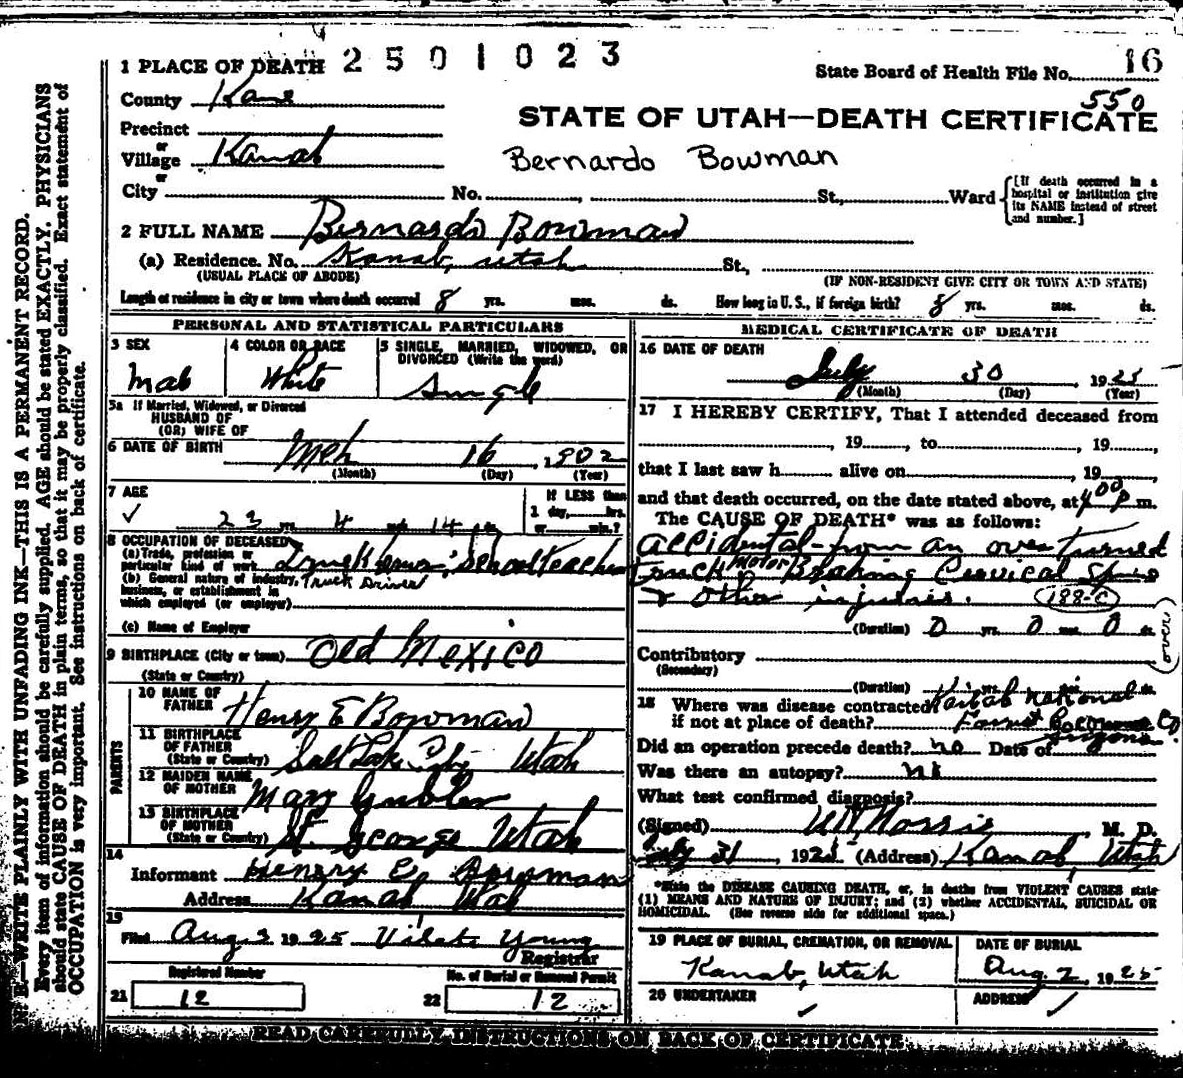 2501023
1 PLACE OF DEATH
State Board of Health File No. 16
County Kane
550
STATE OF UTAH—DEATH CERTIFICATE
Precinct
or
Village Kanab
Bernardo Bowman
or
City No. , St., Ward
[If death occurred in a hospital or institution give its NAME instead of street and number.]
2 FULL NAME Bernardo Bowman
(a) Residence. No. Kanab, Utah St.,
(USUAL PLACE OF ABODE) (IF NON-RESIDENT GIVE CITY OR TOWN AND STATE)
Length of residence in city or town where death occurred 8 yrs. mos. ds. How long in U. S., if foreign birth? 8 yrs. mos. ds.
PERSONAL AND STATISTICAL PARTICULARS
3 SEX
4 COLOR OR RACE
5 SINGLE, MARRIED, WIDOWED, OR DIVORCED (Write the word)
Male White Single
5a If Married, Widowed, or Divorced
HUSBAND OF
(OR) WIFE OF
6 DATE OF BIRTH Mch 16, 1902
(Month) (Day) (Year)
7 AGE
If LESS than
1 day, hrs.
or min.?
23 yrs 4 mos 14 ds
8 OCCUPATION OF DECEASED
(a) Trade, profession or particular kind of work School Teacher
(b) General nature of industry, business, or establishment in which employed (or employer) Truck Driver
(c) Name of Employer
9 BIRTHPLACE (City or town) Old Mexico
(State or Country)
PARENTS
10 NAME OF FATHER Henry E Bowman
11 BIRTHPLACE OF FATHER (State or Country) Salt Lake City Utah
12 MAIDEN NAME OF MOTHER Mary Gubler
13 BIRTHPLACE OF MOTHER (State or Country) St. George Utah
14
Informant Henry E. Bowman
Address Kanab Utah
15
Filed Aug 2 1925 Vilate Young
Registrar
Registered Number No. of Burial or Removal Permit
21 12 22 12
MEDICAL CERTIFICATE OF DEATH
16 DATE OF DEATH
July 30, 1925
(Month) (Day) (Year)
17 I HEREBY CERTIFY, That I attended deceased from
, 19 , to , 19 ,
that I last saw h alive on , 19
and that death occurred, on the date stated above, at 4 00 P m.
The CAUSE OF DEATH* was as follows:
accidental-from an over turned
Truck Motor Breaking Cervical Spine
& other injuries. 188-C
(Duration) 0 yrs. 0 mos. 0 ds.
(over)
Contributory
(Secondary)
(Duration) yrs. mos. ds.
18 Where was disease contracted Kaibab National
if not at place of death? Forest Coconino Co
Arizona.
Did an operation precede death? no Date of
Was there an autopsy? no
What test confirmed diagnosis?
(Signed) Norris, M. D.
July 31, 1925 (Address) Kanab, Utah
*State the DISEASE CAUSING DEATH, or, in deaths from VIOLENT CAUSES state
(1) MEANS AND NATURE OF INJURY; and (2) whether ACCIDENTAL, SUICIDAL OR
HOMICIDAL. (See reverse side for additional space.)
19 PLACE OF BURIAL, CREMATION, OR REMOVAL DATE OF BURIAL
Kanab, Utah Aug 2, 1925
20 UNDERTAKER ADDRESS
READ CAREFULLY INSTRUCTIONS ON BACK OF CERTIFICATE
—WRITE PLAINLY WITH UNFADING INK—THIS IS A PERMANENT RECORD.
Every item of information should be carefully supplied. AGE should be stated EXACTLY. PHYSICIANS
should state CAUSE OF DEATH in plain terms, so that it may be properly classified. Exact statement of
OCCUPATION is very important. See instructions on back of certificate.